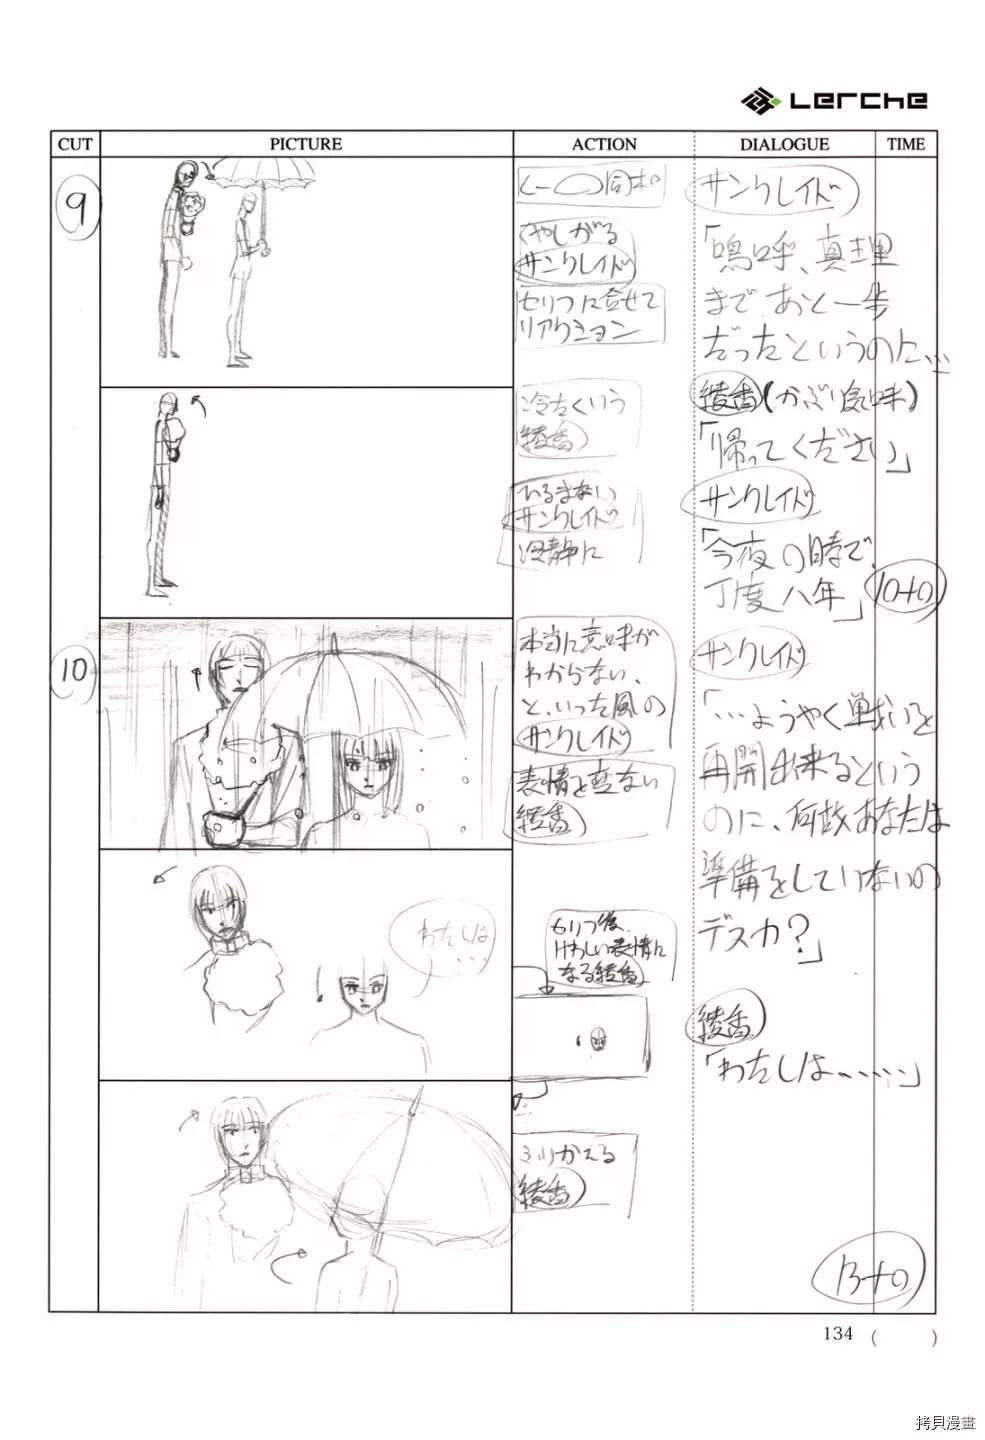 Lerche
CUT
PICTURE
ACTION
DIALOGUE
TIME
9
くやしがる
サンクレイド
セリフに合せて
リアクション
サンクレイド
「嗚呼、真理
まであと一歩
だったというのに…
冷たくいう
綾香
綾香(かぶり気味)
「帰ってください」
ひるまない
サンクレイド
冷静に
サンクレイド
「今夜の時で、
丁度八年」
10+0
10
本当に意味が
わからない、
と、いった風の
サンクレイド
表情を変ない
綾香
サンクレイド
「…ようやく戦いを
再開出来るという
のに、何故あなたは
準備をしていないの
デスカ?」
わたしは
・・・
セリフ後、
けわしい表情に
なる綾香
綾香
「わたしは……」
ふりかえる
綾香
13+0
134 ( )
拷貝漫畫